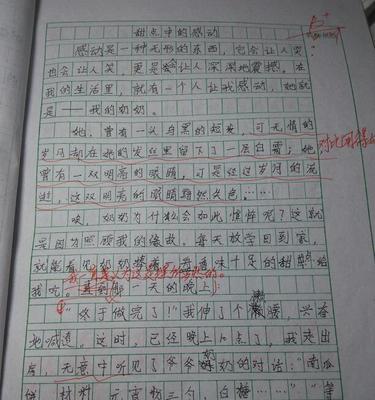 甜点中的感动
感动是一种无形的东西,它会让人哭,
也会让人笑,更是会让人深深地震撼。在
我的生活里,就有一个人让我感动,她就
是——我的奶奶。
她,曾有一头乌黑的短发,可无情的
岁月却在她的发丝里留下了一层白霜;她
曾有一双明亮的眼睛,可是经过岁月的流
逝,这双明亮的眼睛黯然失色……
唉,奶奶为什么会如此憔悴呢?这就
是因为照顾我的缘故。每天放学回到家,
就能看见奶奶
味十足的甜点给
我吃。直到那一天的晚上:
“终于做完了!”我伸了个懒腰,兴奋
地喊道。这时,已经晚上10点了,我走出
房,无意中听见了爷爷奶奶的对话:“南瓜
材料,元宵粉三勺,白糖……”